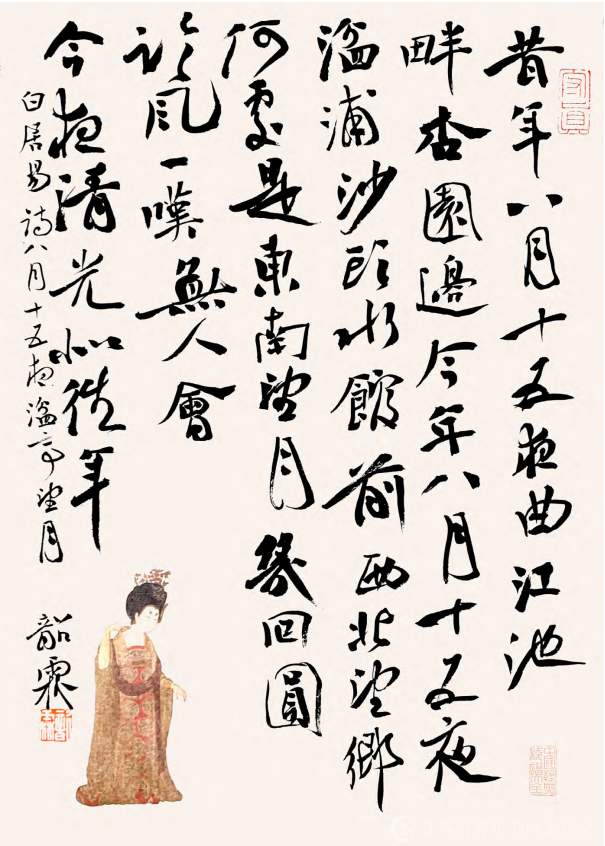 昔年八月十五夜曲江池
畔杏園邊今年八月十五夜
湓浦沙頭水館前西北望鄉
何處是東南望月幾回圓
臨風一嘆無人會
今夜清光似往年
白居易詩八月十五夜湓亭望月
韶霖